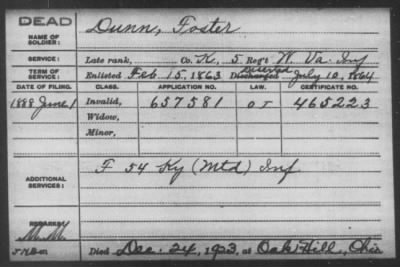 DEAD
NAME OF SOLDIER: Dunn, Foster
SERVICE: Late rank, Co. K, 5 Reg't W. Va. Inf
TERM OF SERVICE: Enlisted Feb 15, 1863 Deserted Discharged July 10, 1864
DATE OF FILING. CLASS. APPLICATION NO. LAW. CERTIFICATE NO.
1888 June 1 Invalid, 657581 465223
Widow,
Minor,
ADDITIONAL SERVICES: F 54 Ky (Mtd) Inf
REMARKS:
Died Dec. 24, 1923, at Oak Hill, Ohio